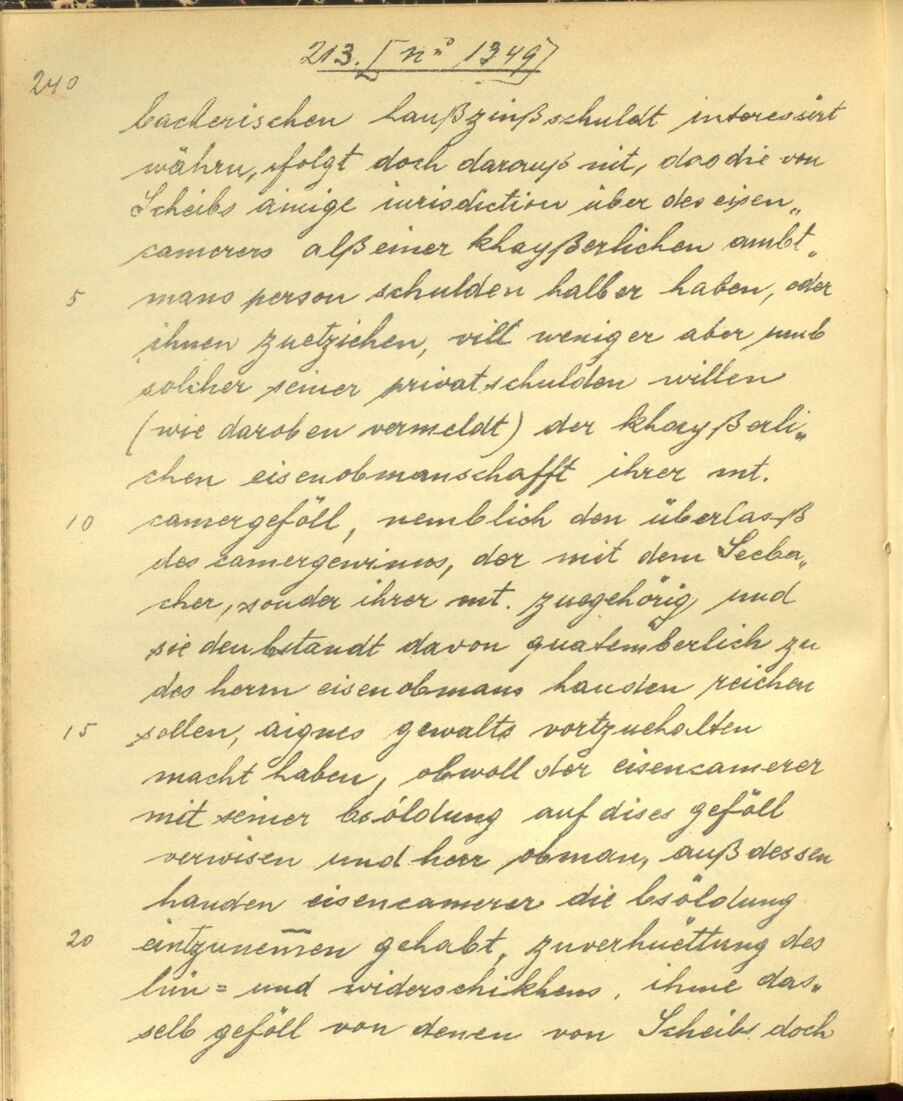 213. [nº 1349]
240
bacherischen haußzinßschuldt interessirt
währn, folgt doch darauß nit, das die von
Scheibs ainige iurisdiction über des eisen„
camerers alß einer khayßerlichen ambt„
5 mans person schulden halber haben, oder
ihnen zuetziehen, vill weniger aber umb
solcher seiner privatschulden willen
(wie daroben vermeldt) der khayßerli„
chen eisenobmanschafft ihrer mt.
10 camergeföll, nemblich den überlasß
des camergewinns, der mit dem Seeba„
cher, sonder ihrer mt. zuegehörig und
sie den bstandt davon quatemberlich zu
des herrn eisenobmans handen reichen
15 sollen, aignes gewalts vortzuehalten
macht haben, obwoll der eisencamerer
mit seiner bsöldung auf dises geföll
verwisen und herr obman, auß dessen
handen eisencamerer die bsöldung
20 eintzunem̅en gehabt, zuverhüettung des
hin= und widerschikhens, ihme das„
selb geföll von denen von Scheibs doch